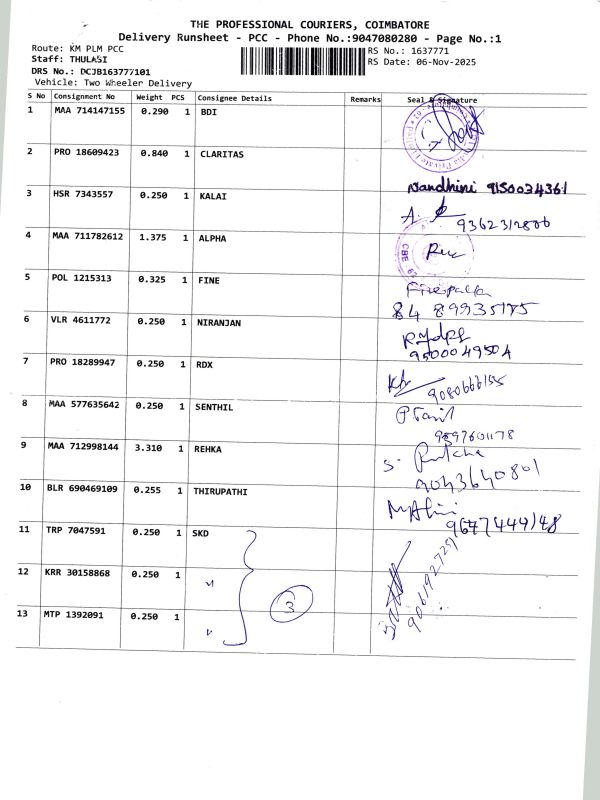 THE PROFESSIONAL COURIERS, COIMBATORE
Delivery Runsheet - PCC - Phone No.:9047080280 - Page No.:1
Route: KM PLM PCC
Staff: THULASI
DRS No.: DCJB163777101
Vehicle: Two Wheeler Delivery
RS No.: 1637771
RS Date: 06-Nov-2025
S No Consignment No Weight PCS Consignee Details Remarks Seal & Signature
1 MAA 714147155 0.290 1 BDI
2 PRO 18609423 0.840 1 CLARITAS
Nandhini 9150034361
3 HSR 7343557 0.250 1 KALAI
9362312806
4 MAA 711782612 1.375 1 ALPHA
CBE
5 POL 1215313 0.325 1 FINE
6 VLR 4611772 0.250 1 NIRANJAN
7 PRO 18289947 0.250 1 RDX
9080666155
8 MAA 577635642 0.250 1 SENTHIL
9 MAA 712998144 3.310 1 REHKA
9043640801
10 BLR 690469109 0.255 1 THIRUPATHI
11 TRP 7047591 0.250 1 SKD
12 KRR 30158868 0.250 1 "
3
13 MTP 1392091 0.250 1 "